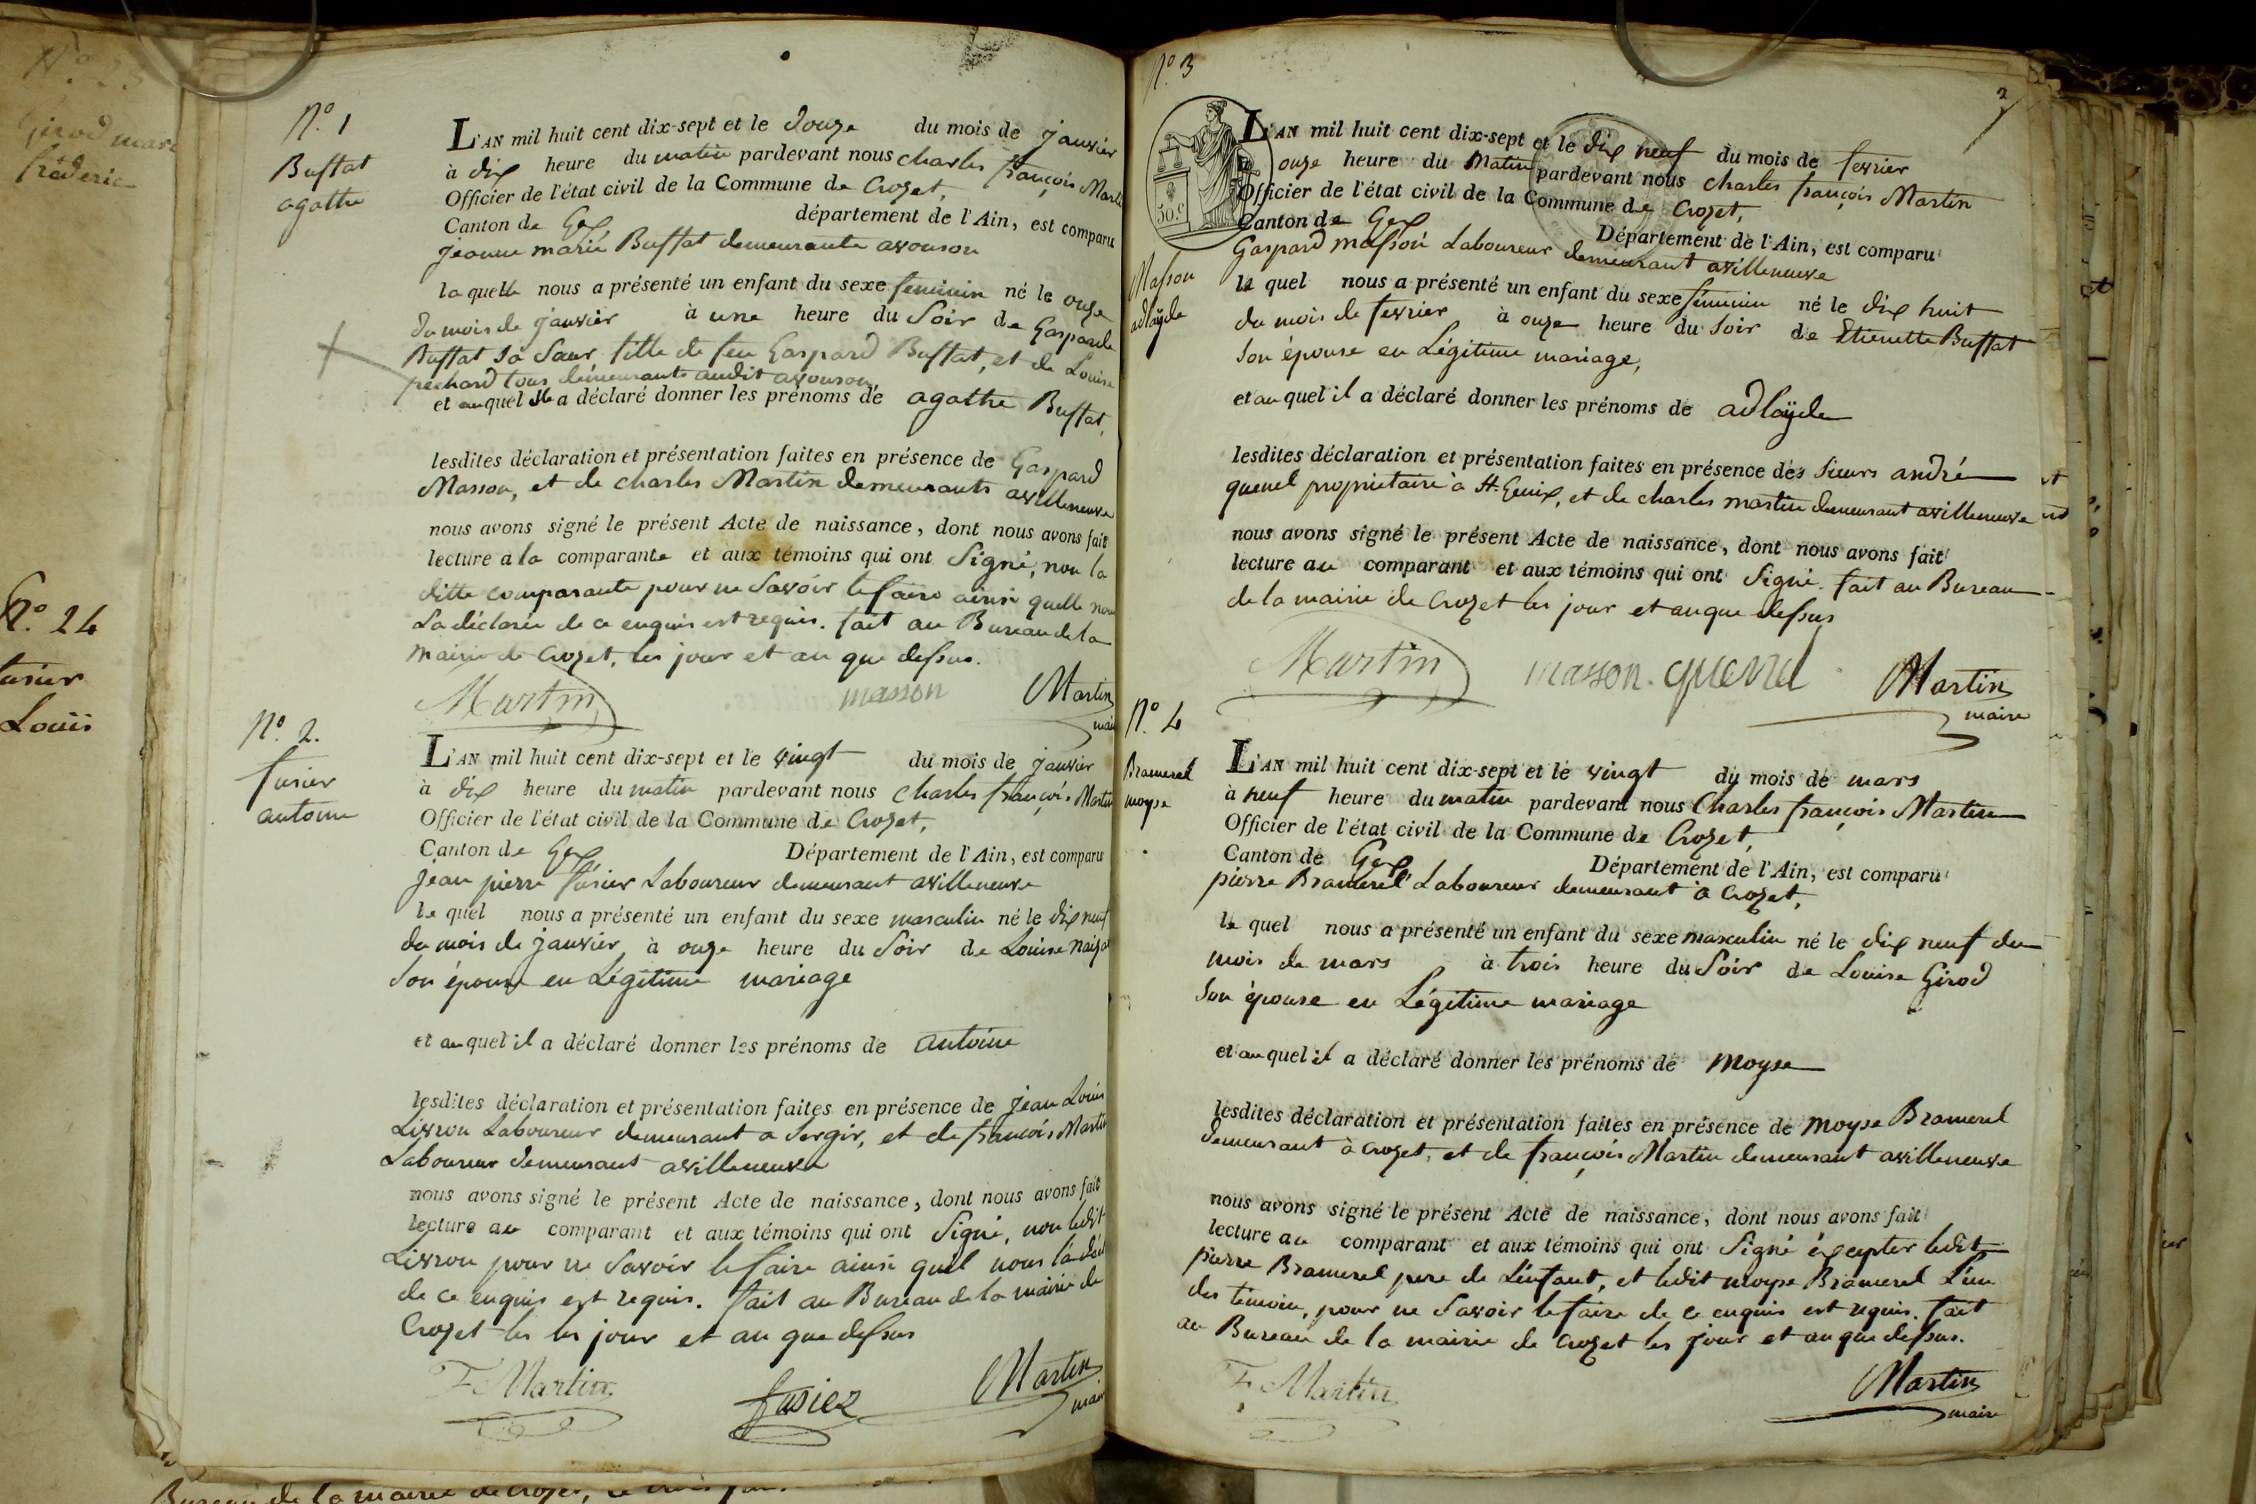 N.º 1
Buffat
agathe
L'AN mil huit cent dix-sept et le douze du mois de janvier
à dix heure du matin pardevant nous charles françois Martin
Officier de l'état civil de la Commune de Crozet,
Canton de Gex département de l'Ain, est comparu
jeanne marie Buffat demeurante avouson
la quelle nous a présenté un enfant du sexe feminin né le onze
du mois de janvier à une heure du Soir de Gasparde
Buffat Sa Sœur, fille de feu Gaspard Buffat, et de Louise
pechard tous demeurants audit avouson,
et auquel elle a déclaré donner les prénoms de agathe Buffat,
lesdites déclaration et présentation faites en présence de Gaspard
Masson, et de charles Martin demeurants avilleneuve
nous avons signé le présent Acte de naissance, dont nous avons fait
lecture a la comparante et aux témoins qui ont Signé, non la
ditte comparante pour ne Savoir le faire ainsi quelle nous
La déclarée de ce enquis est requis. fait au Bureau de la
Mairie de Crozet, les jour et an que dessus.
Martin masson Martin
maire
N.º 2.
fusier
antoine
L'AN mil huit cent dix-sept et le vingt du mois de janvier
à dix heure du matin pardevant nous charles françois Martin
Officier de l'état civil de la Commune de Crozet,
Canton de Gex Département de l'Ain, est comparu
jean pierre fusier Laboureur demeurant avilleneuve
le quel nous a présenté un enfant du sexe masculin né le dix neuf
du mois de janvier à onze heure du Soir de Louise
Son épouse en Légitime mariage
et auquel il a déclaré donner les prénoms de antoine
lesdites déclaration et présentation faites en présence de jean Louis
Livron Laboureur demeurant a Sergix, et de françois Martin
Laboureur demeurant avilleneuve
nous avons signé le présent Acte de naissance, dont nous avons fait
lecture au comparant et aux témoins qui ont Signé, non ledit
Livron pour ne Savoir le faire ainsi quil nous la
de ce enquis est requis. fait au Bureau de la mairie de
Crozet les les jour et an que dessus
F. Martin fusiez Martin
maire
N.º 3
2
50.c
Masson
adlaÿde
L'AN mil huit cent dix-sept et le dix neuf du mois de fevrier
à onze heure du Matin pardevant nous charles françois Martin
Officier de l'état civil de la Commune de Crozet,
Canton de Gex Département de l'Ain, est comparu
Gaspard masson Laboureur demeurant avilleneuve
le quel nous a présenté un enfant du sexe féminin né le dix huit
du mois de fevrier à onze heure du Soir de Etienette Buffat
Son épouse en Légitime mariage,
et au quel il a déclaré donner les prénoms de adlaÿde
lesdites déclaration et présentation faites en présence des Sieurs andré
quenel proprietaire à St. Genix, et de charles martin demeurant avilleneuve
nous avons signé le présent Acte de naissance, dont nous avons fait
lecture au comparant et aux témoins qui ont Signé. fait au Bureau
de la mairie de Crozet les jour et anque dessus
Martin masson. quenel Martin
maire
N.º 4
Bramerel
moyse
L'AN mil huit cent dix-sept et le vingt du mois de mars
à neuf heure du matin pardevant nous Charles françois Martin
Officier de l'état civil de la Commune de Crozet,
Canton de Gex Département de l'Ain, est comparu
pierre Bramerel Laboureur demeurant à Crozet,
le quel nous a présenté un enfant du sexe masculin né le dix neuf du
mois de mars à trois heure du Soir de Louise Girod
Son épouse en Légitime mariage
et au quel il a déclaré donner les prénoms de moyse
lesdites déclaration et présentation faites en présence de moyse Bramerel
demeurant à crozet, et de françois Martin demeurant avilleneuve
nous avons signé le présent Acte de naissance, dont nous avons fait
lecture au comparant et aux témoins qui ont Signé éxcepter ledit
pierre Bramerel pere de Lenfant, et ledit moyse Bramerel L'un
des témoin, pour ne Savoir le faire de ce enquis est requis. fait
au Bureau de la mairie de crozet les jour et an que dessus.
F. Martin Martin
maire
Girod
fréderic
N.º 24
Louis
Bureau de la mairie de Crozet,